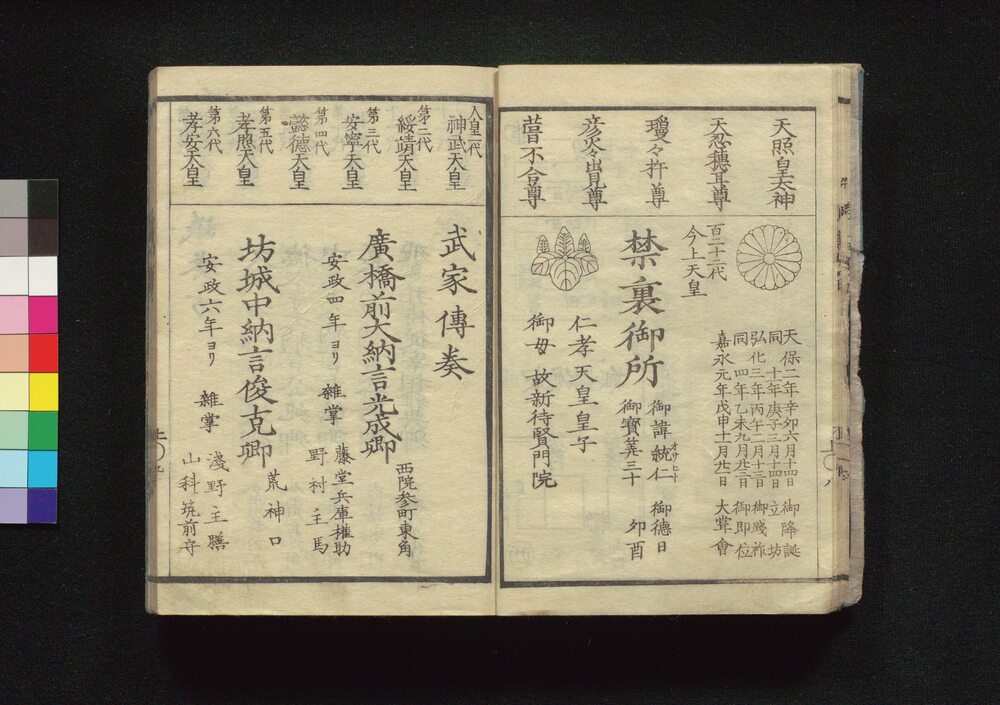 天照皇太神
天忍穗耳尊
瓊々杵尊
彦火々出見尊
葺不合尊
百二十一代
今上天皇
天保二年辛卯六月十四日 御降誕
同十一年庚子三月十四日 立坊
弘化三年丙午二月十三日 御踐祚
同四年乙未九月廿三日 御即位
嘉永元年戊申十一月廿一日 大甞會
禁裏御所
御諱統仁 御德日
オサヒト
御寶筭三十 卯酉
仁孝天皇皇子
御母 故新待賢門院
人皇一代
神武天皇
第二代
綏靖天皇
第三代
安寧天皇
第四代
懿德天皇
第五代
孝照天皇
第六代
孝安天皇
武家傳奏
西院参町東角
廣橋前大納言光成卿
安政四年ヨリ 雜掌
藤堂兵庫權助
野村主馬
荒神口
坊城中納言俊克卿
安政六年ヨリ 雜掌
淺野主膳
山科筑前守